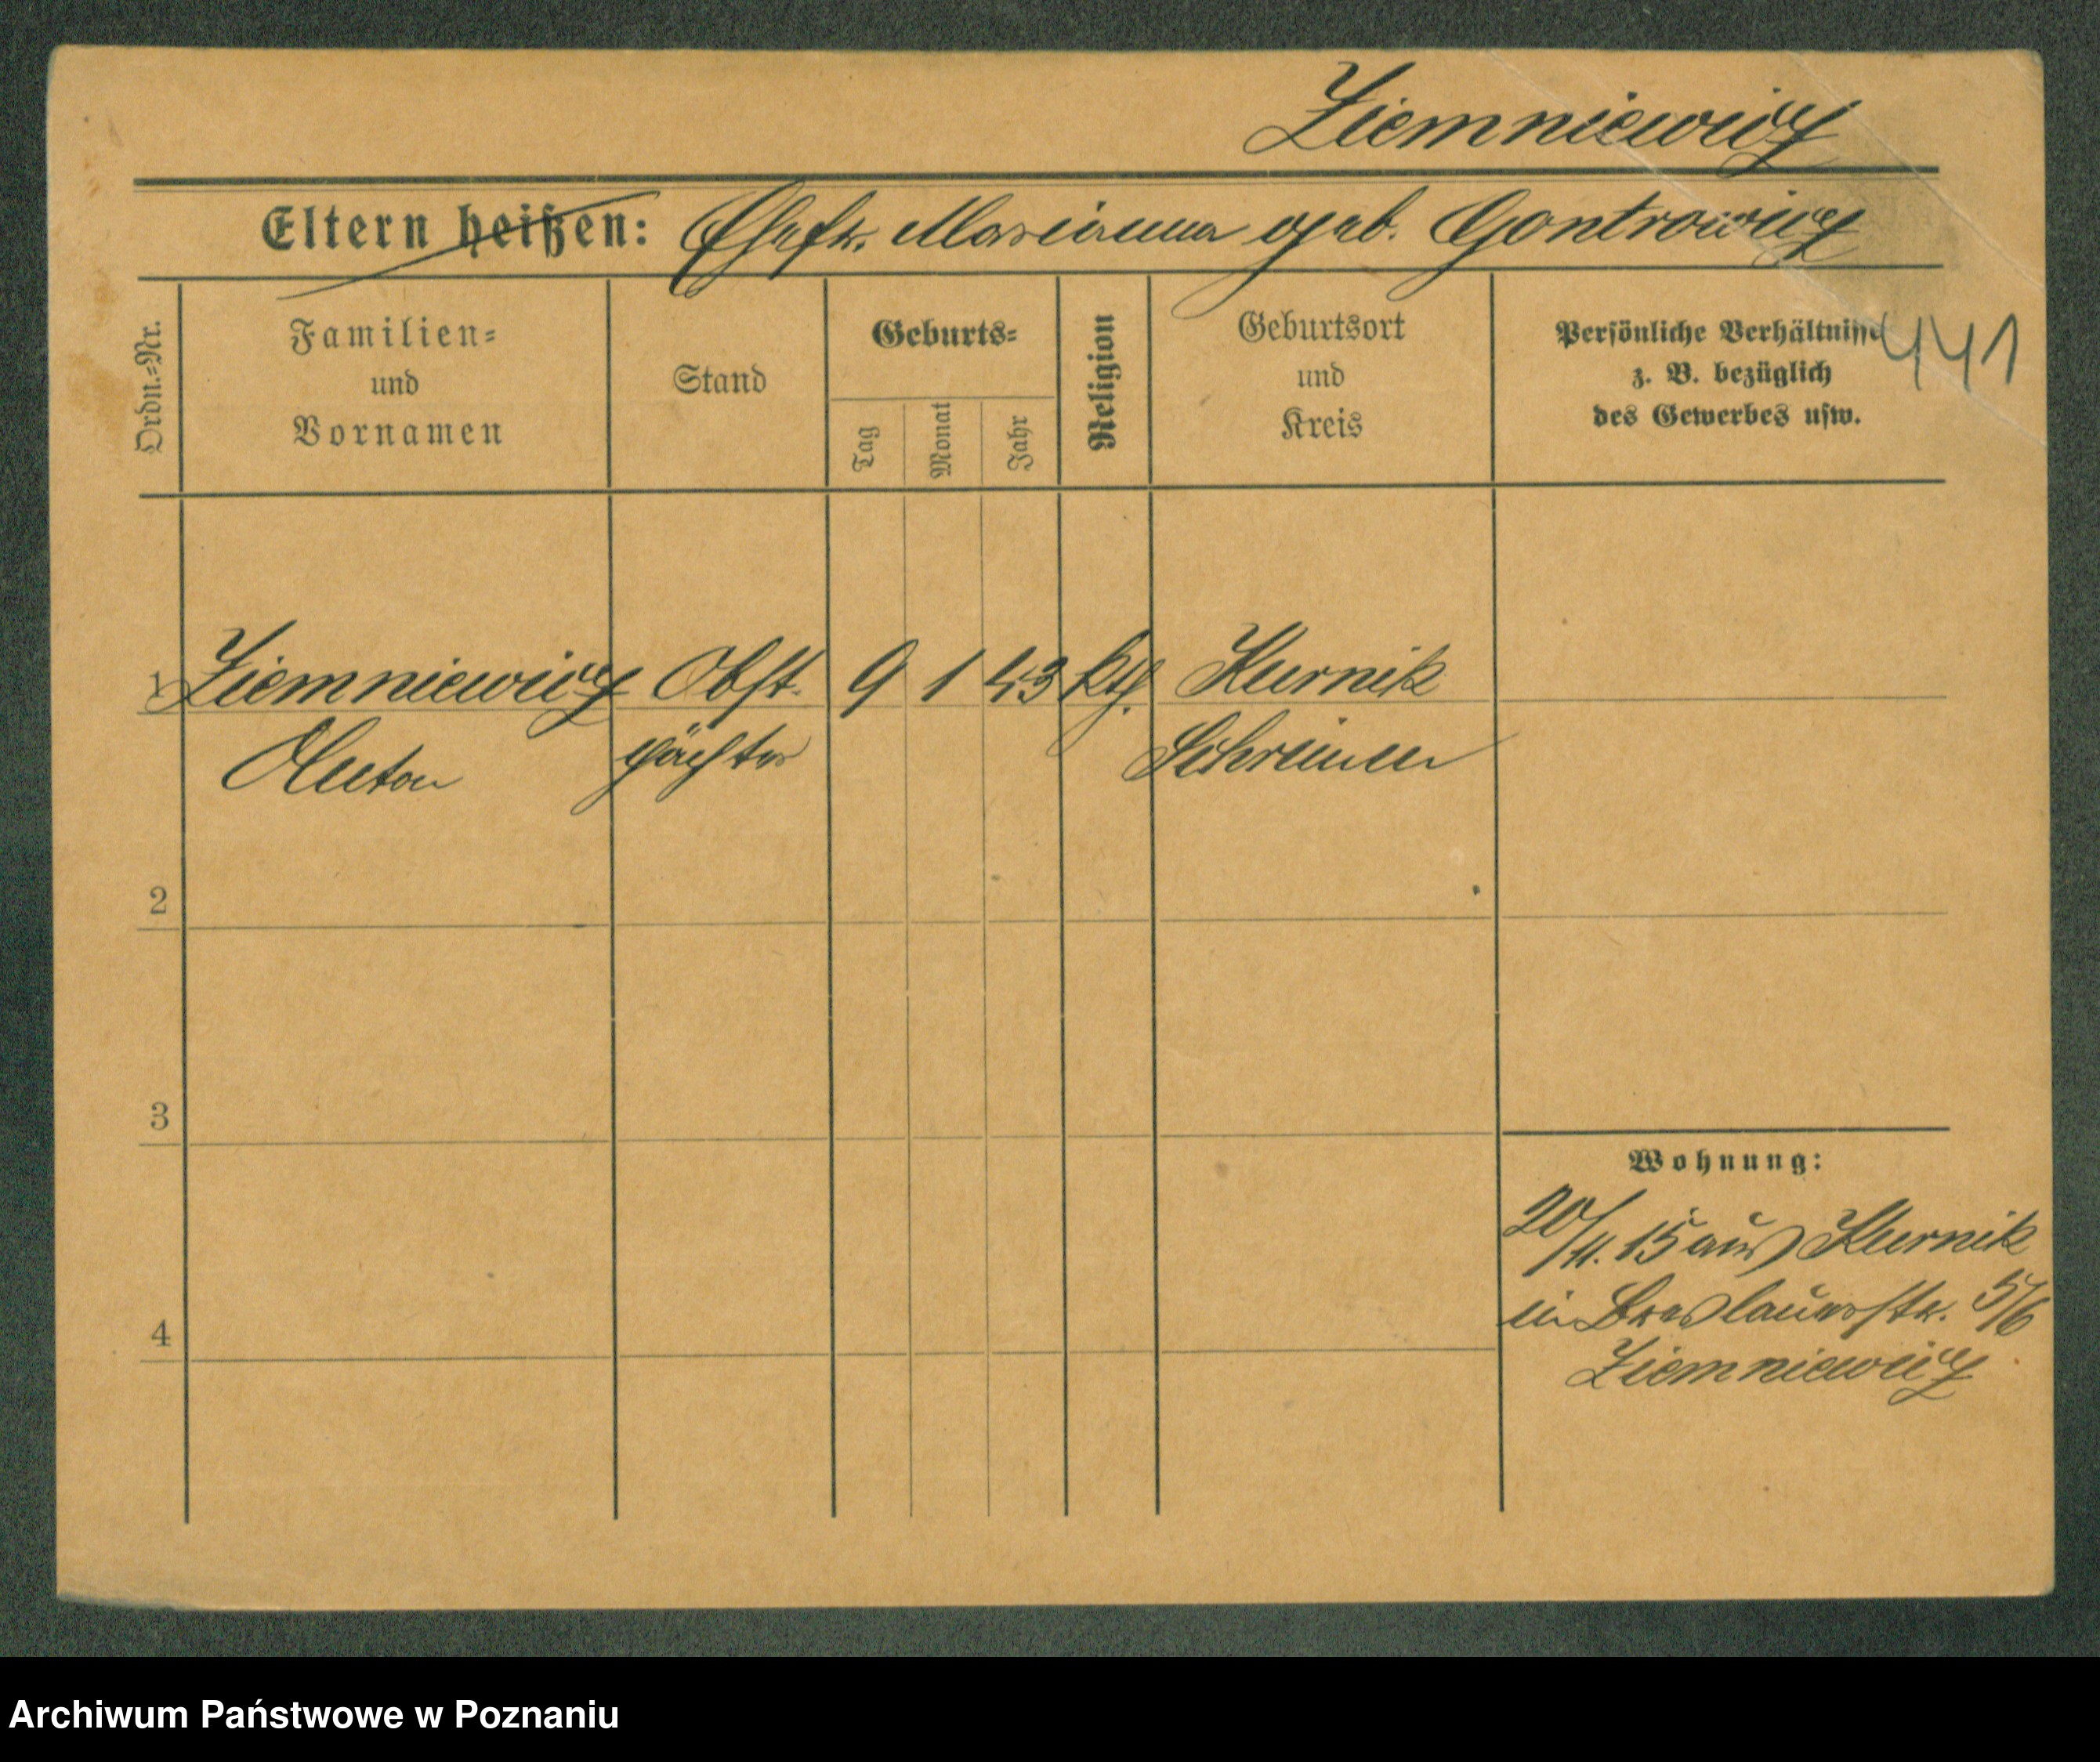 Ziemniewicz
Eltern heißen: Ehefr. Marianna geb. Gontrowicz
441
Ordn.-Nr.
Familien-
und
Vornamen
Stand
Geburts-
Tag
Monat
Jahr
Religion
Geburtsort
und
Kreis
Persönliche Verhältnisse
z. B. bezüglich
des Gewerbes usw.
1 Ziemniewicz Obst- 9 1 43 kth. Kurnik
Anton pächter Schrimm
2
3
4
Wohnung:
20/11. 15 aus Kurnik
in Breslauerstr. 5/6
Ziemniewicz
Archiwum Państwowe w Poznaniu